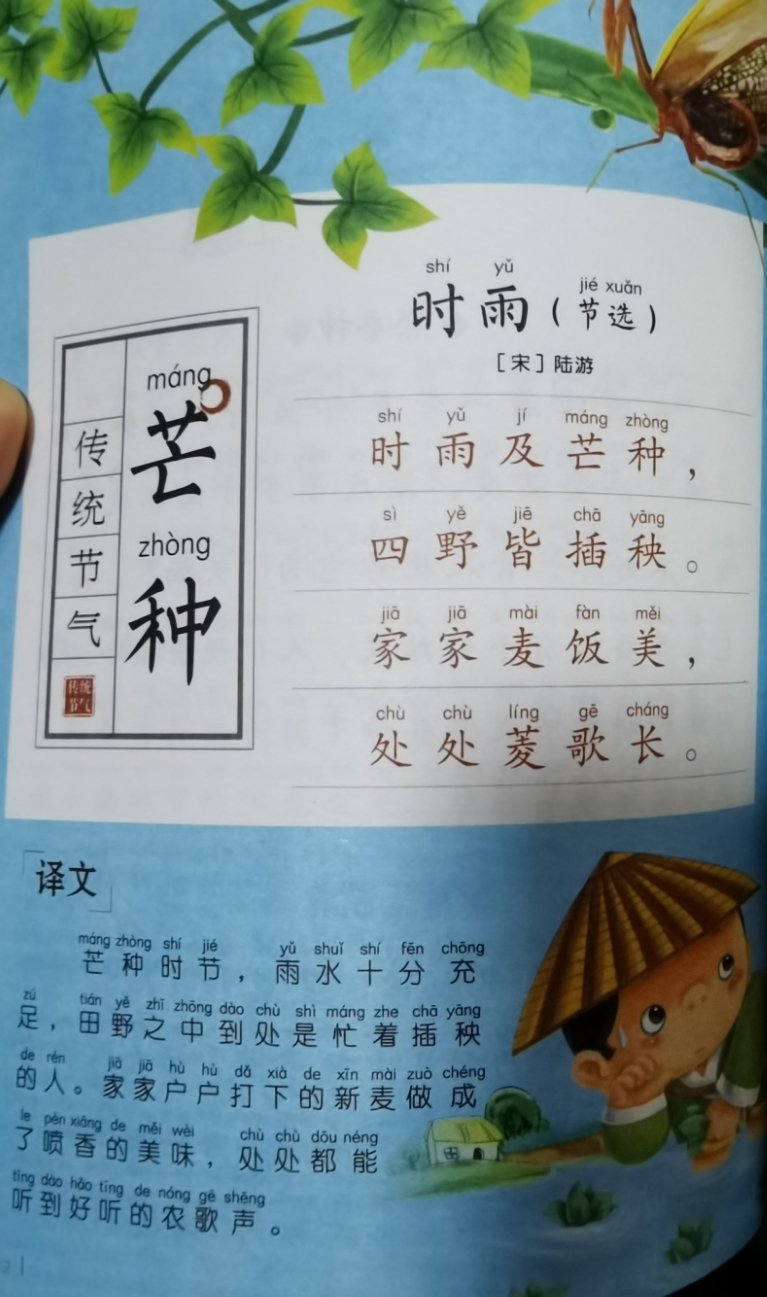 shí yǔ jié xuǎn
时雨（节选）
［宋］陆游
máng
芒
zhòng
种
传统节气
传统
节气
shí yǔ jí máng zhòng
时雨及芒种，
sì yě jiē chā yāng
四野皆插秧。
jiā jiā mài fàn měi
家家麦饭美，
chù chù líng gē cháng
处处菱歌长。
译文
máng zhòng shí jié yǔ shuǐ shí fēn chōng
芒种时节，雨水十分充
zú tián yě zhī zhōng dào chù shì máng zhe chā yāng
足，田野之中到处是忙着插秧
de rén jiā jiā hù hù dǎ xià de xīn mài zuò chéng
的人。家家户户打下的新麦做成
le pèn xiāng de měi wèi chù chù dōu néng
了喷香的美味，处处都能
tīng dào hǎo tīng de nóng gē shēng
听到好听的农歌声。